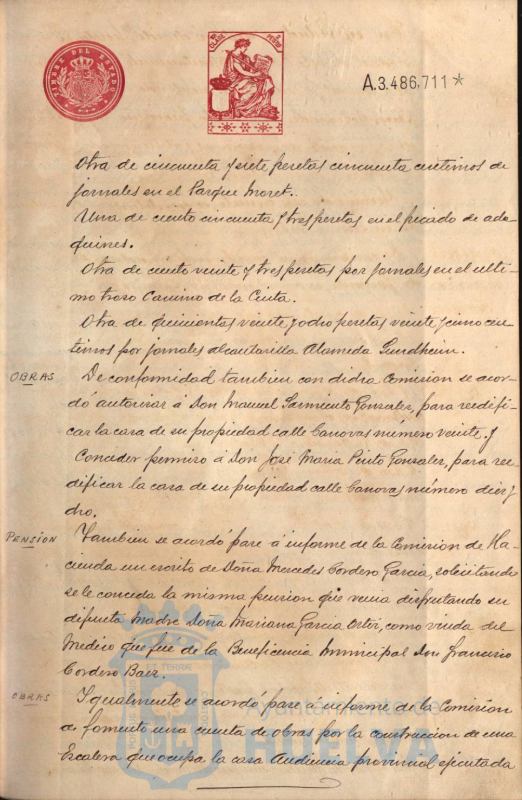 TIMBRE DEL ESTADO
CLASE
PESETA
A.3.486.711*
Otra de cincuenta y siete pesetas cincuenta centimos de
jornales en el Parque Moret.
Una de ciento cincuenta y tres pesetas en el picado de ado-
quines.
Otra de ciento veinte y tres pesetas por jornales en el ulti-
mo troso Camino de la Cinta.
Otra de quinientas veinte y ocho pesetas veinte y cinco cen-
timos por jornales alcantarilla Alameda Sundheim.
OBRAS
De conformidad tambien con dicha Comision se acor-
dó autorizar á Don Manuel Sarmiento Gonzalez, para reedifi-
car la casa de su propiedad calle Canovas número veinte. y
Conceder permiso á Don José Maria Pinto Gonzalez, para ree-
dificar la casa de su propiedad calle Canovas número diez y
ocho.
PENSION
Tambien se acordó pase á informe de la Comision de Ha-
cienda un escrito de Doña Mercedes Cordero Garcia, solicitando
se le conceda la misma pension que venia disfrutando su
difunta Madre Doña Mariana Garcia Ortiz, como viuda del
Medico que fué de la Beneficencia Municipal Don Francisco
Cordero Baez.
OBRAS
Igualmente se acordó pase á informe de la Comision
de fomento una cuenta de obras por la construccion de una
Escalera que ocupa la casa Audiencia provincial ejecutada
Ayuntamiento de
HUELVA